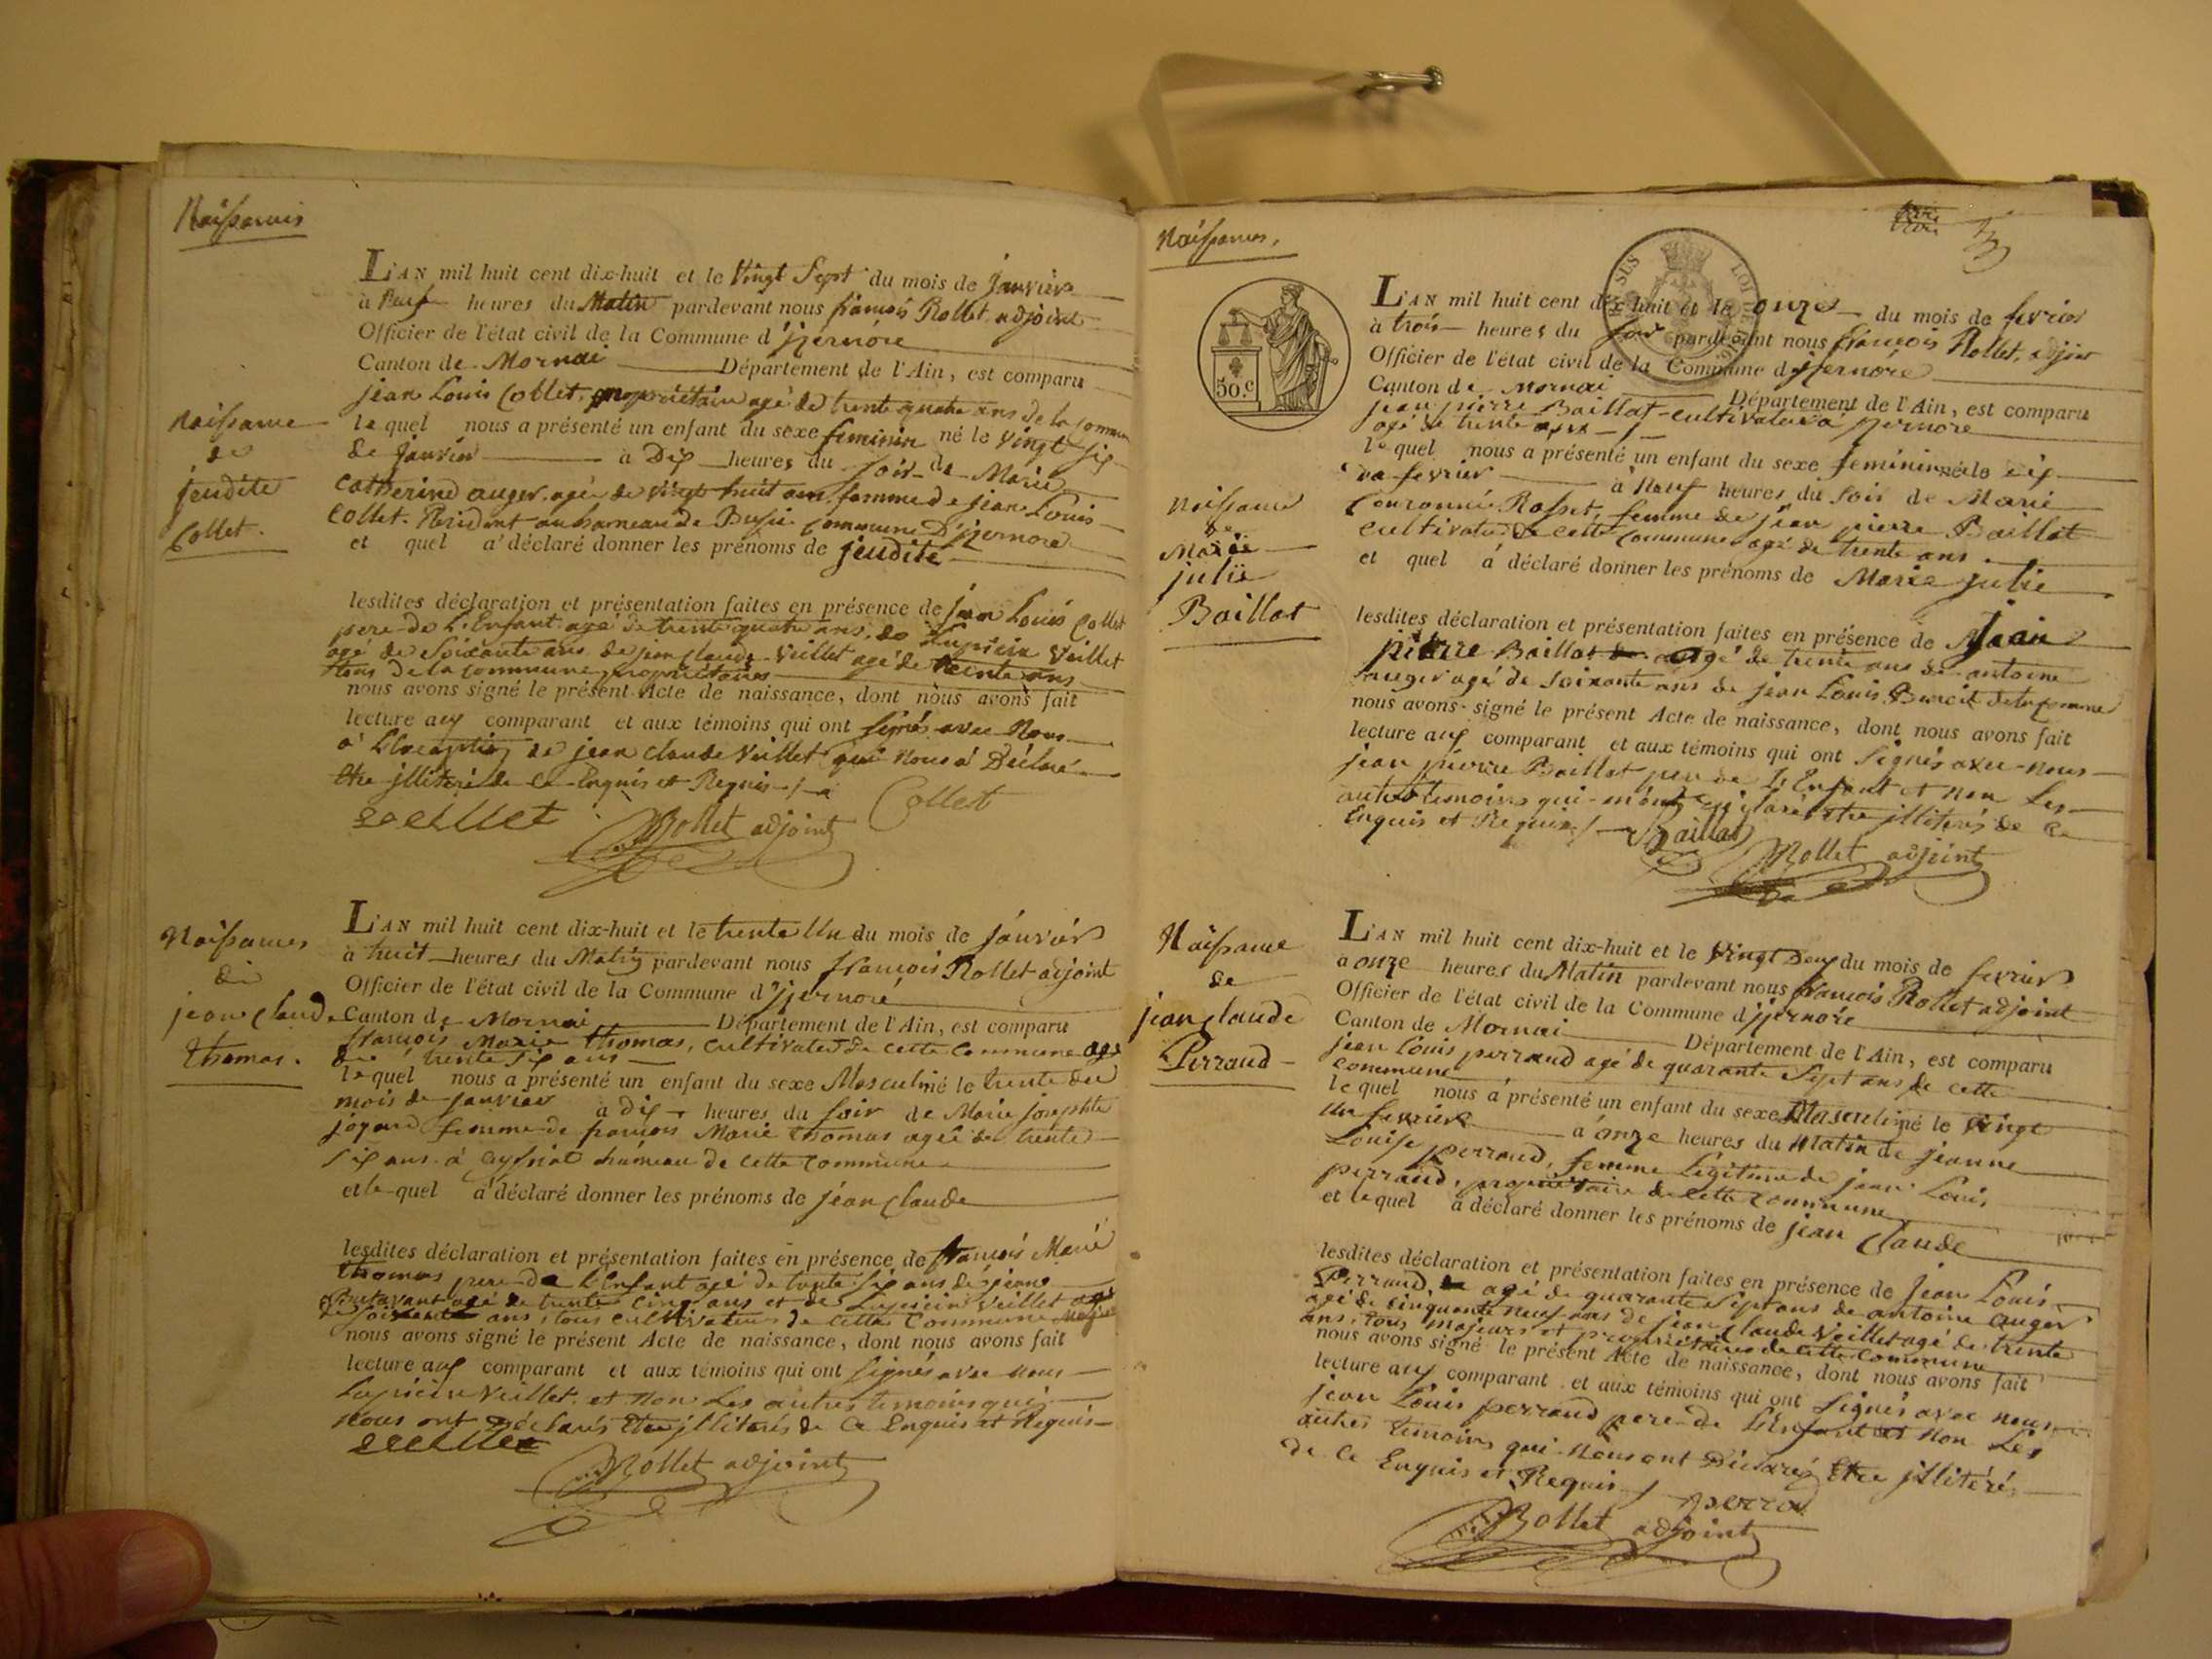 Naissances
L'AN mil huit cent dix-huit et le Vingt Sept du mois de janvier
à neuf heures du Matin pardevant nous françois Rollet adjoint
Officier de l'état civil de la Commune d'jzernore
Canton de Mornai Département de l'Ain, est comparu
jean Louis Collet, propriétaire agé de trente quatre ans de la commune
Naissance
de
jeudite
Collet.
lequel nous a présenté un enfant du sexe feminin né le vingt six
de janvier à Dix heures du soir de Marie
Catherine auger agée de vingt huit ans femme de jean Louis
Collet. Résident au hameau de Bussi Commune D'jzernore
et quel a déclaré donner les prénoms de jeudite
lesdites déclaration et présentation faites en présence de jean Louis Collet
pere de L'Enfant agé de trente quatre ans, de Lupicin Veillet
agé de Soixante ans de jean Claude Veillet agé de trente ans
tous de la commune propriétaires
nous avons signé le présent Acte de naissance, dont nous avons fait
lecture aux comparant et aux témoins qui ont signé avec Nous
à L'Exception de jean claude Veillet qui nous a Déclaré
Etre jlliteré de Ce Enquis et Requis
veillet Rollet adjoint Collet
Naissances
de
jean Claude
thomas.
L'AN mil huit cent dix-huit et le trente Un du mois de janvier
à huit heures du Matin pardevant nous françois Rollet adjoint
Officier de l'état civil de la Commune d'jzernore
Canton de Mornai Département de l'Ain, est comparu
françois Marie thomas, cultivateur de cette commune agé
de trente six ans
lequel nous a présenté un enfant du sexe Masculin né le trente du
mois de janvier à dix heures du soir de Marie josephte
joyard femme de francois Marie thomas agée de trente
six ans à Ceyssiat hameau de cette commune
et le quel a déclaré donner les prénoms de jean Claude
lesdites déclaration et présentation faites en présence de francois Marie
thomas pere de L'Enfant agé de trente six ans de
Butavant agé de trente cinq ans et de Lupicin Veillet agé
de soixante ans, tous cultivateurs de cette Commune
nous avons signé le présent Acte de naissance, dont nous avons fait
lecture aux comparant et aux témoins qui ont signés avec nous
Lupicin Veillet, et non Les autres temoins qui
nous ont Déclarés Etre jlliterés de Ce Enquis et Requis
veillet
Rollet adjoint
Naissances,
50.c
L'AN mil huit cent dix-huit et le onze du mois de fevrier
à trois heures du soir pardevant nous francois Rollet, adjoint
Officier de l'état civil de la Commune d'jzernore
Canton de Mornai Département de l'Ain, est comparu
jean pierre Baillat cultivateur à jzernore
agé de trente ans
Naissance
de
Marie
julie
Baillat
lequel nous a présenté un enfant du sexe feminin née le dix
de fevrier à Neuf heures du soir de Marie
Couronnée Rosset, femme de jean pierre Baillat
cultivateur de cette commune agé de trente ans
et quel à déclaré donner les prénoms de Marie julie
lesdites déclaration et présentation faites en présence de Jean
pierre Baillat agé de trente ans de antoine
auger agé de soixante ans de jean Louis
nous avons signé le présent Acte de naissance, dont nous avons fait
lecture aux comparant et aux témoins qui ont signés avec nous
jean pierre Baillat pere de L'Enfant et non Les
autres temoins qui m'ont déclaré etre jlliterés de Ce
Enquis et Requis Baillat
Rollet adjoint
Naissance
de
jean claude
Perraud
L'AN mil huit cent dix-huit et le Vingt Deux du mois de fevrier
à onze heures du Matin pardevant nous francois Rollet adjoint
Officier de l'état civil de la Commune d'jzernore
Canton de Mornai Département de l'Ain, est comparu
jean Louis perraud agé de quarante sept ans de cette
commune
lequel nous a présenté un enfant du sexe Masculin né le vingt
un fevrier à onze heures du Matin de jeanne
Louise perraud, femme Légitime de jean Louis
perraud, propriétaire de cette commune
et lequel a déclaré donner les prénoms de jean Claude
lesdites déclaration et présentation faites en présence de jean Louis
Perraud, agé de quarante sept ans de antoine auger
agé de cinquante neuf ans de jean Claude Veillet agé de trente
ans, tous majeurs et propriétaires de cette commune
nous avons signé le présent Acte de naissance, dont nous avons fait
lecture aux comparant et aux témoins qui ont Signés avec nous
jean Louis perraud pere de L'Enfant et non Les
autres temoins qui nous ont Déclarés Etre jlliterés
de Ce Enquis et Requis
Rollet adjoint